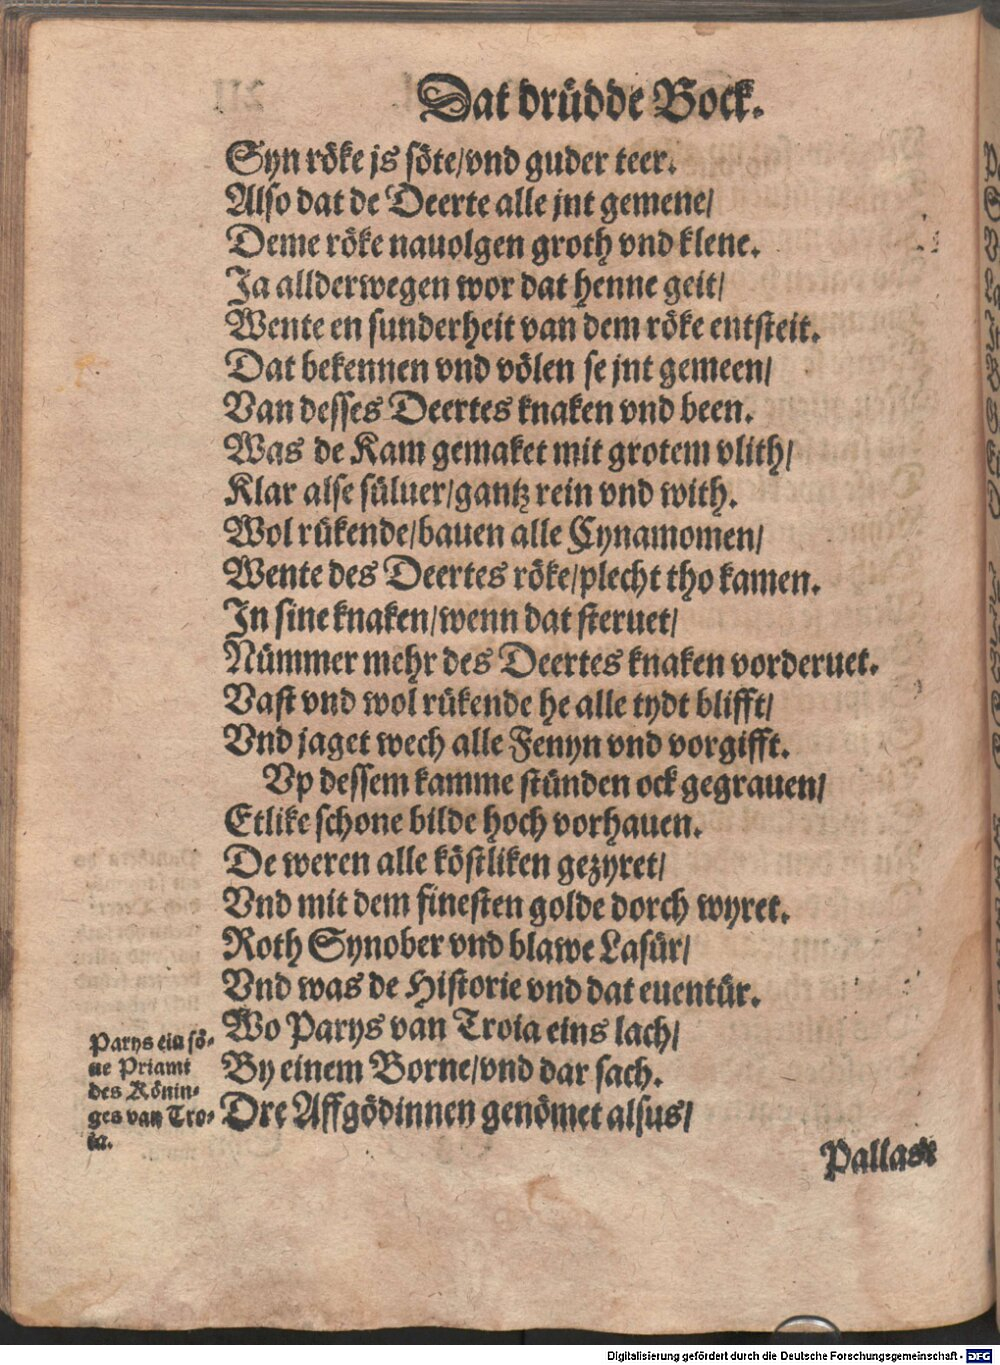 Dat drüdde Bock.
Syn röke js söte/vnd guder teer.
Also dat de Deerte alle jnt gemene/
Deme röke nauolgen groth vnd klene.
Ja allderwegen wor dat henne geit/
Wente en sunderheit van dem röke entsteit.
Dat bekennen vnd völen se jnt gemeen/
Van desses Deertes knaken vnd been.
Was de Kam gemaket mit grotem vlith/
Klar alse süluer/gantz rein vnd with.
Wol rükende/bauen alle Cynamomen/
Wente des Deertes röke/plecht tho kamen.
In sine knaken/wenn dat steruet/
Nümmer mehr des Deertes knaken vorderuet.
Vast vnd wol rükende he alle tydt blifft/
Vnd jaget wech alle Fenyn vnd vorgifft.
Vp dessem kamme stünden ock gegrauen/
Etlike schone bilde hoch vorhauen.
De weren alle köstliken gezyret/
Vnd mit dem finesten golde dorch wyret.
Roth Synober vnd blawe Lasür/
Vnd was de Historie vnd dat euentür.
Wo Parys van Troia eins lach/
By einem Borne/vnd dar sach.
Dre Affgödinnen genömet alsus/
Parys ein sö-
ne Priami
des Könin-
ges van Tro-
ia.
Pallas
Digitalisierung gefördert durch die Deutsche Forschungsgemeinschaft - DFG